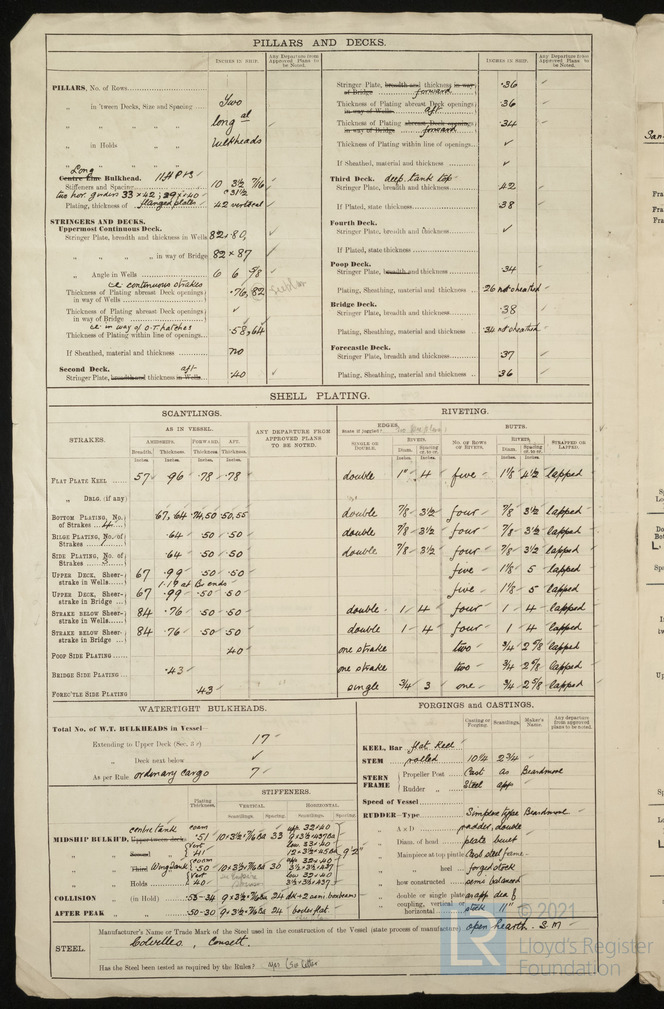 PILLARS AND DECKS.
INCHES IN SHIP.
Any Departure from Approved Plans to be Noted.
PILLARS, No. of Rows
" in 'tween Decks, Size and Spacing Two
" " " " long at
" in Holds " " bulkheads
" " " "
Long
Centre Line Bulkhead.
Stiffeners and Spacing 10 3½ 7/16
two hor. girders 33 x 42
Plating, thickness of flanged plates 42 vertical
STRINGERS AND DECKS.
Uppermost Continuous Deck.
Stringer Plate, breadth and thickness in Wells 82 x .80
" " " " in way of Bridge 82 x 87
" Angle in Wells 6 6 5/8
continuous strakes
Thickness of Plating abreast Deck openings in way of Wells .76, 82
Thickness of Plating abreast Deck openings in way of Bridge ✓
in way of O.T. hatches
Thickness of Plating within line of openings .58, 64
If Sheathed, material and thickness no
Second Deck. aft
Stringer Plate, breadth and thickness in Wells .40
INCHES IN SHIP.
Any Departure from Approved Plans to be Noted.
Stringer Plate, breadth and thickness in way of Bridge forward .36
Thickness of Plating abreast Deck openings in way of Wells aft .36
Thickness of Plating abreast Deck openings in way of Bridge forward .34
Thickness of Plating within line of openings ✓
If Sheathed, material and thickness ✓
Third Deck. deep tank top
Stringer Plate, breadth and thickness 42
If Plated, state thickness 38
Fourth Deck.
Stringer Plate, breadth and thickness ✓
If Plated, state thickness
Poop Deck.
Stringer Plate, breadth and thickness .34
Plating, Sheathing, material and thickness 26 not sheathed
Bridge Deck.
Stringer Plate, breadth and thickness .38
Plating, Sheathing, material and thickness 34 not sheathed
Forecastle Deck.
Stringer Plate, breadth and thickness 37
Plating, Sheathing, material and thickness 36
SHELL PLATING.
SCANTLINGS.
RIVETING.
STRAKES.
AS IN VESSEL.
AMIDSHIPS. FORWARD. AFT.
Breadth. Thickness. Thickness. Thickness.
Inches. Inches. Inches. Inches.
ANY DEPARTURE FROM APPROVED PLANS TO BE NOTED.
EDGES.
State if joggled?
SINGLE OR DOUBLE.
RIVETS.
Diam. Spacing cr. to cr.
Inches. Inches.
BUTTS.
NO. OF ROWS OF RIVETS.
RIVETS.
Diam. Spacing cr. to cr.
Inches. Inches.
STRAPPED OR LAPPED.
FLAT PLATE KEEL 57 .96 .78 .78 double 1" 4 five 1⅛ 4½ lapped
" DBLG. (if any)
BOTTOM PLATING, No. of Strakes 4 67, 64 .74, 50 .50, 55 double 7/8 3½ four 7/8 3½ lapped
BILGE PLATING, No. of Strakes .64 .50 .50 double 7/8 3½ four 7/8 3½ lapped
SIDE PLATING, No. of Strakes .64 .50 .50 double 7/8 3½ four 7/8 3½ lapped
UPPER DECK, Sheerstrake in Wells 67 .99 .50 .50 five 1⅛ 5 lapped
1.19 at Br. ends
UPPER DECK, Sheerstrake in Bridge 67 .99 .50 .50 five 1⅛ 5 lapped
STRAKE BELOW Sheerstrake in Wells 84 .76 .50 .50 double 1 4 four 1 4 lapped
STRAKE BELOW Sheerstrake in Bridge 84 .76 .50 50 double 1 4 four 1 4 lapped
POOP SIDE PLATING 40 one strake two ¾ 2⅝ lapped
BRIDGE SIDE PLATING .43 one strake two ¾ 2⅝ lapped
FORE'CTLE SIDE PLATING .43 single ¾ 3 one ¾ 2⅝ lapped
WATERTIGHT BULKHEADS.
Total No. of W.T. BULKHEADS in Vessel
Extending to Upper Deck 17
" Deck next below ✓
As per Rule. ordinary cargo 7
STIFFENERS.
Plating Thickness.
VERTICAL.
HORIZONTAL.
Scantlings. Spacing. Scantlings. Spacing.
MIDSHIP BULKH'D, centre tank .51 10x3½x7/16 33
" Wing tank .50 10x3½x7/16 30
" Holds .40
COLLISION (in Hold) .53-34 9x3½x7/16 24
AFTER PEAK .50-30 9x3½x7/16 24
FORGINGS AND CASTINGS.
Casting or Forging. Scantlings. Maker's Name.
Any departure from approved plans to be noted.
KEEL, Bar flat keel
STEM rolled 10¼ 2¾
STERN FRAME
Propeller Post Cast as Beardmore
Rudder " Steel app
Speed of Vessel
RUDDER—Type Simplex type Beardmore
" A x D rudder, double
" Diam. of head plate built
Mainpiece at top pintle Cast steel frame
" " heel forged stock
" how constructed semi balanced
" double or single plate
" coupling, vertical or horizontal stock 11"
STEEL.
Manufacturer's Name or Trade Mark of the Steel used in the construction of the Vessel (state process of manufacture) open hearth S.M
Colvilles, Consett.
Has the Steel been tested as required by the Rules? Yes
© 2021
LR
Lloyd's Register
Foundation